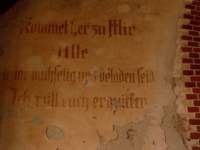 Kommet her zu Mir
Alle
die ihr mühselig und beladen seid
Ich will euch erquicken